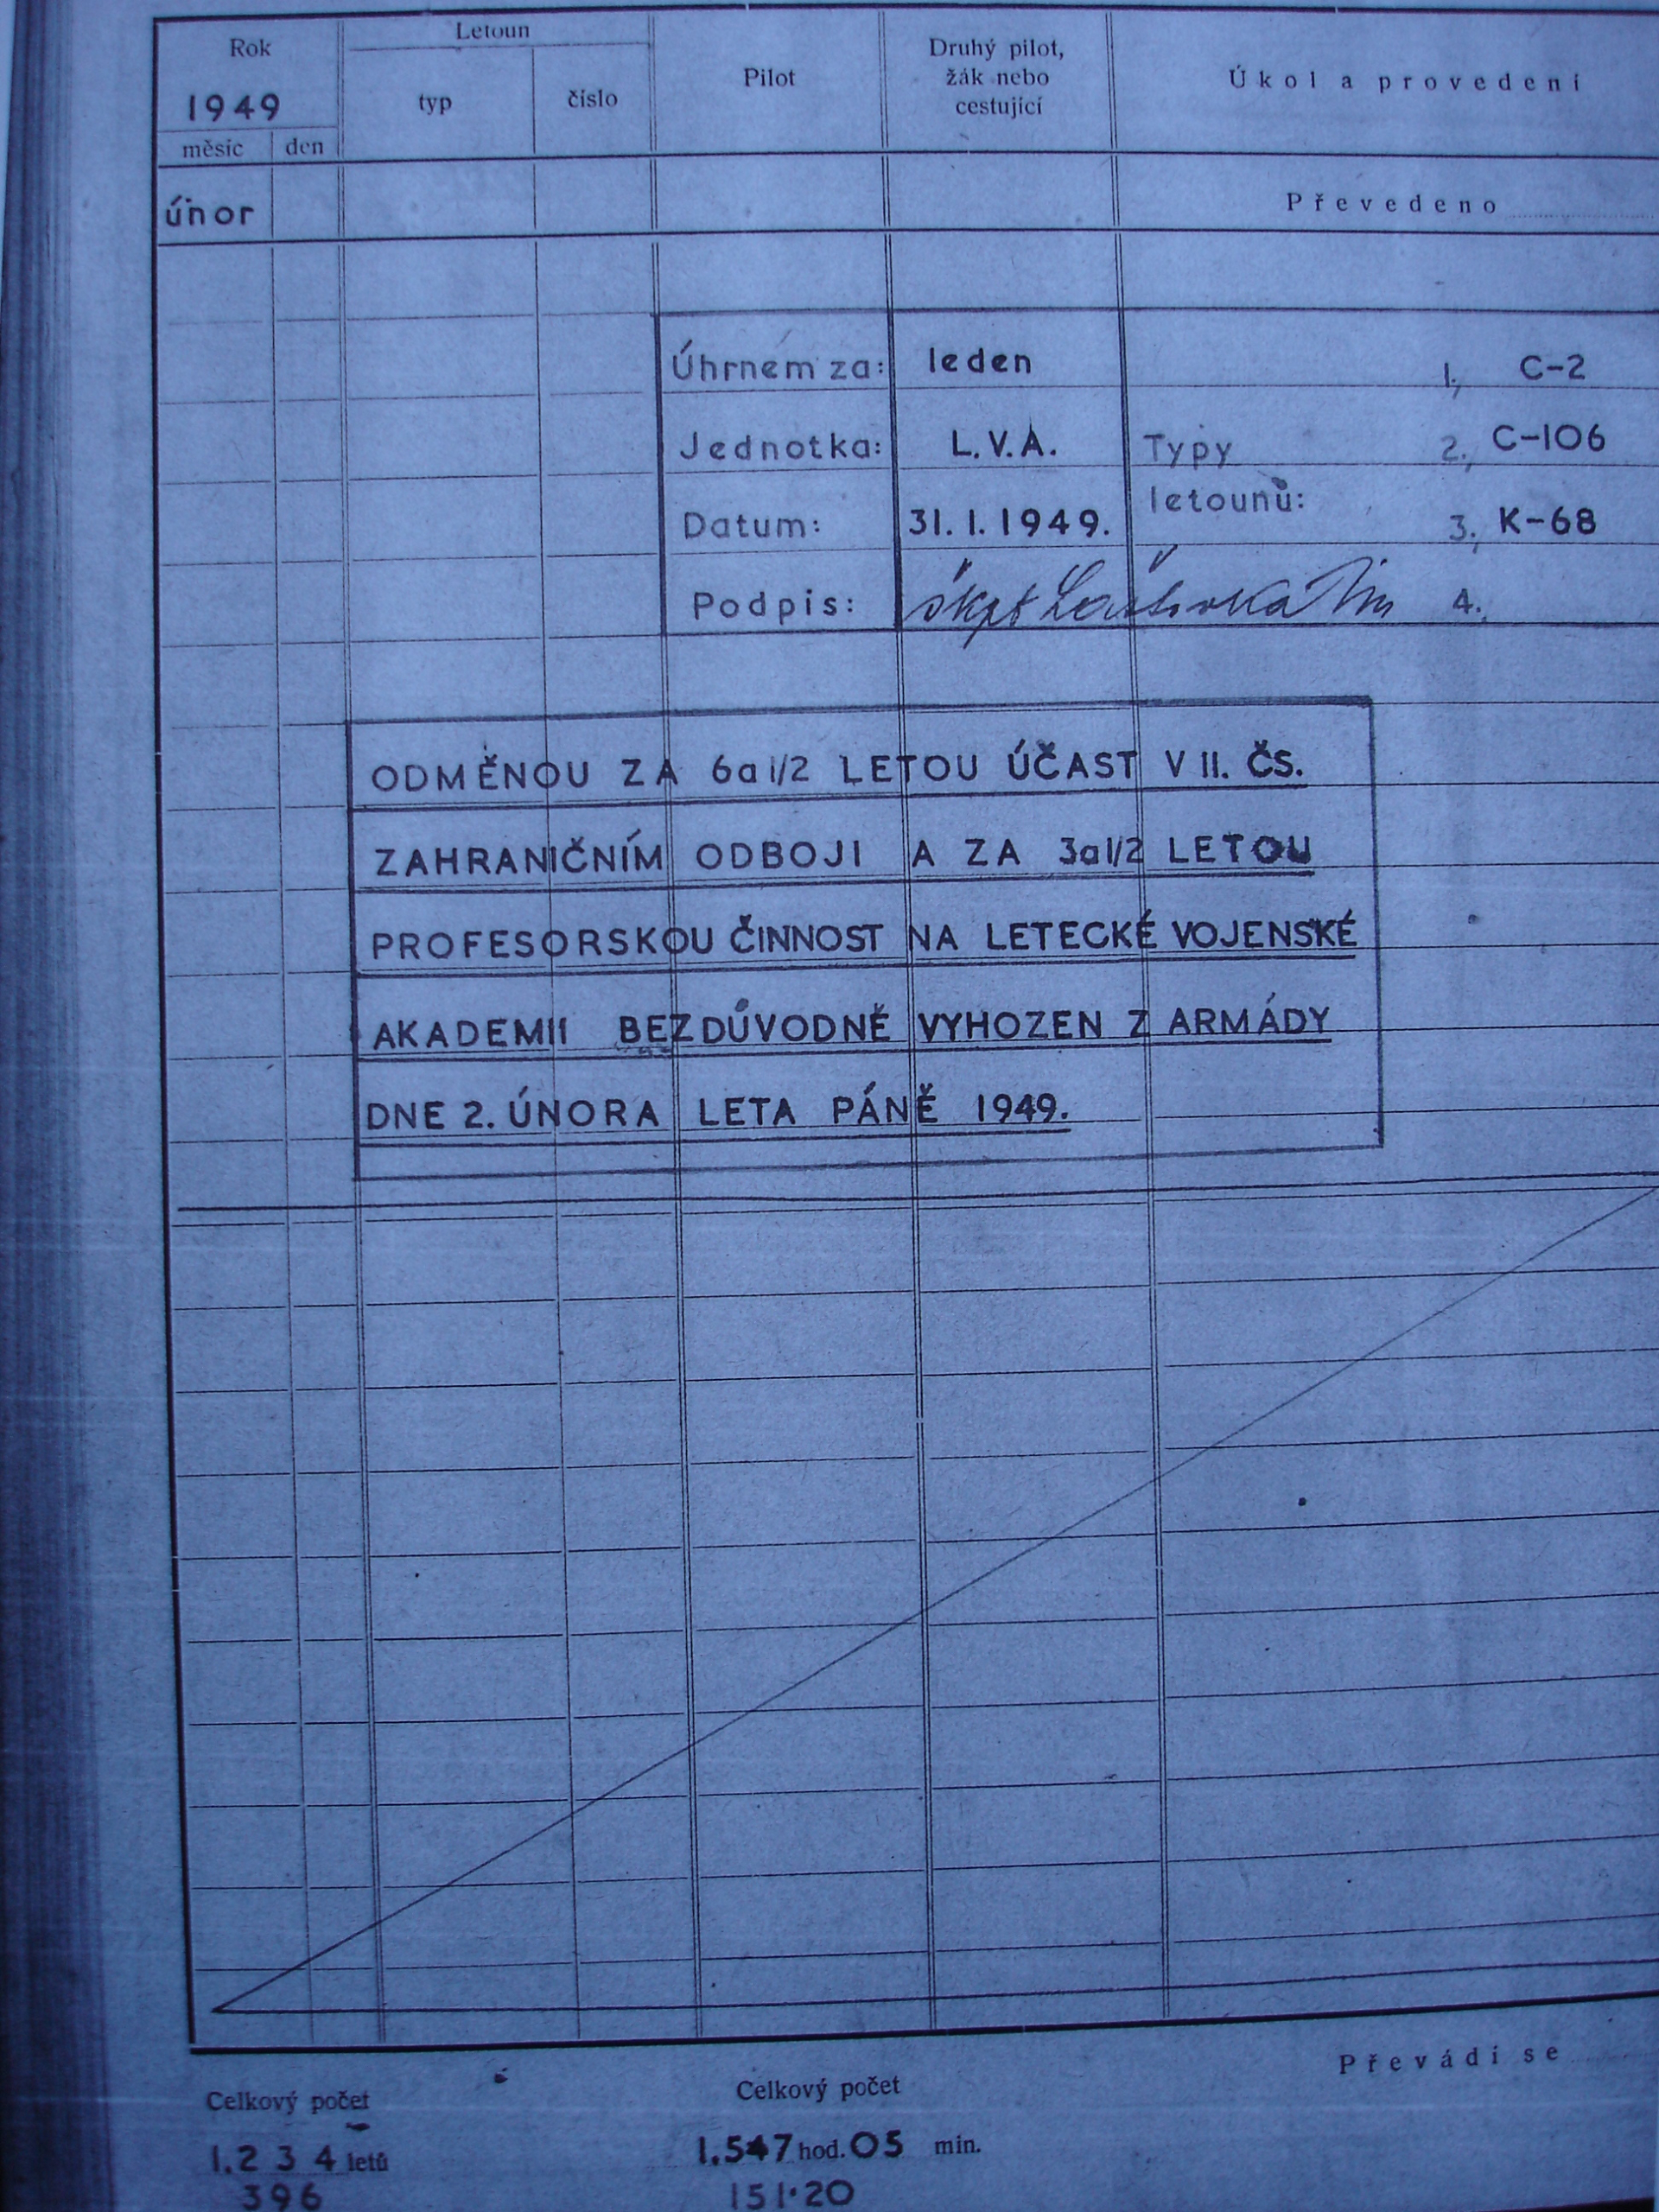 Rok
Letoun
Pilot
Druhý pilot,
žák nebo
cestující
Úkol a provedení
1949
typ
číslo
měsíc
den
únor
Převedeno
Úhrnem za: leden 1., C-2
Jednotka: L.V.A. Typy 2., C-106
letounů:
Datum: 31. 1. 1949. 3., K-68
Podpis: škpt 4.
ODMĚNOU ZA 6a1/2 LETOU ÚČAST V II. ČS.
ZAHRANIČNÍM ODBOJI A ZA 3a1/2 LETOU
PROFESORSKOU ČINNOST NA LETECKÉ VOJENSKÉ
AKADEMII BEZDŮVODNĚ VYHOZEN Z ARMÁDY
DNE 2. ÚNORA LETA PÁNĚ 1949.
Převádí se
Celkový počet
Celkový počet
1.234 letů
1.547 hod. 05 min.
396
151·20